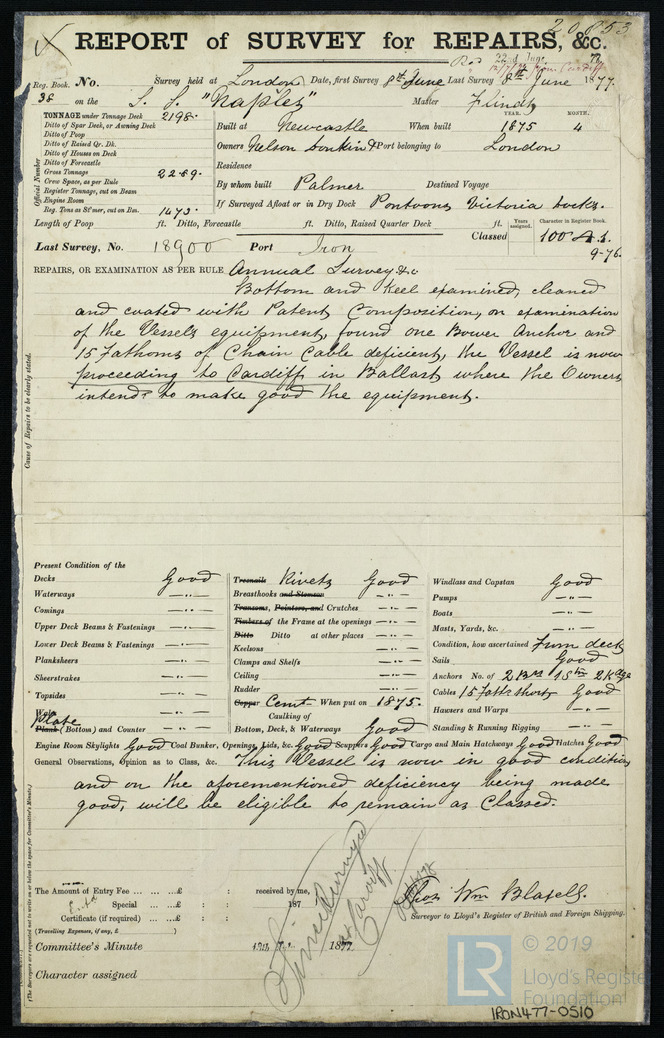 20853
REPORT of SURVEY for REPAIRS, &c.
Reg. Book. No. Survey held at London Date, first Survey 8th June Last Survey 8th June 1877.
38 on the S. S. "Naples" Master Flindt
TONNAGE under Tonnage Deck 2198.
Ditto of Spar Deck, or Awning Deck
Ditto of Poop
Ditto of Raised Qr. Dk.
Ditto of Houses on Deck
Ditto of Forecastle
Gross Tonnage 2289.
Crew Space, as per Rule
Register Tonnage, cut on Beam
Engine Room
Reg. Tons as St'mer, cut on Bm. 1473.
Official Number
Built at Newcastle When built YEAR. 1875 MONTH. 4
Owners Nelson Donkin & Co Port belonging to London
Residence
By whom built Palmer Destined Voyage
If Surveyed Afloat or in Dry Dock Pontoons Victoria Docks.
Length of Poop ft. Ditto, Forecastle ft. Ditto, Raised Quarter Deck ft.
Years assigned. Character in Register Book.
Classed 100 A.1.
9-76.
Last Survey, No. 18900 Port Iron
REPAIRS, OR EXAMINATION AS PER RULE Annual Survey &c
Bottom and Keel examined, cleaned
and coated with Patent Composition, on examination
of the Vessels equipment, found one Bower Anchor and
15 Fathoms of Chain Cable deficient, the Vessel is now
proceeding to Cardiff in Ballast where the Owners
intend to make good the equipment.
Cause of Repairs to be clearly stated.
Present Condition of the
Decks Good
Waterways —"—
Comings —"—
Upper Deck Beams & Fastenings —"—
Lower Deck Beams & Fastenings —"—
Planksheers —"—
Sheerstrakes —"—
Topsides —"—
Wales —"—
Plate
Plank (Bottom) and Counter —"—
Treenails Rivets Good
Breasthooks and Stemson —"—
Transoms, Pointers, and Crutches —"—
Timbers of the Frame at the openings —"—
Ditto Ditto at other places —"—
Keelsons —"—
Clamps and Shelfs —"—
Ceiling —"—
Rudder —"—
Copper Cemt When put on 1875.
Caulking of
Bottom, Deck, & Waterways Good
Windlass and Capstan Good
Pumps —"—
Boats —"—
Masts, Yards, &c. —"—
Condition, how ascertained From deck
Sails Good
Anchors No. of 2 Brs 1 Stm 2 Kdge
Cables 15 Faths short Good
Hawsers and Warps —"—
Standing & Running Rigging —"—
Engine Room Skylights Good Coal Bunker, Openings, Lids, &c. Good Scuppers Good Cargo and Main Hatchways Good Hatches Good
General Observations, Opinion as to Class, &c. This Vessel is now in good condition
and on the aforementioned deficiency being made
good, will be eligible to remain as Classed.
The Amount of Entry Fee ... ... £ : : received by me,
Special ... ... £ : : 187
Certificate (if required) ... £ : :
(Travelling Expenses, if any, £ )
Thos Wm Blaxell.
Surveyor to Lloyd's Register of British and Foreign Shipping.
Since Surveyed
at Cardiff
Committee's Minute 187
Character assigned
© 2019
LR Lloyd's Register
Foundation
IRON477-0510